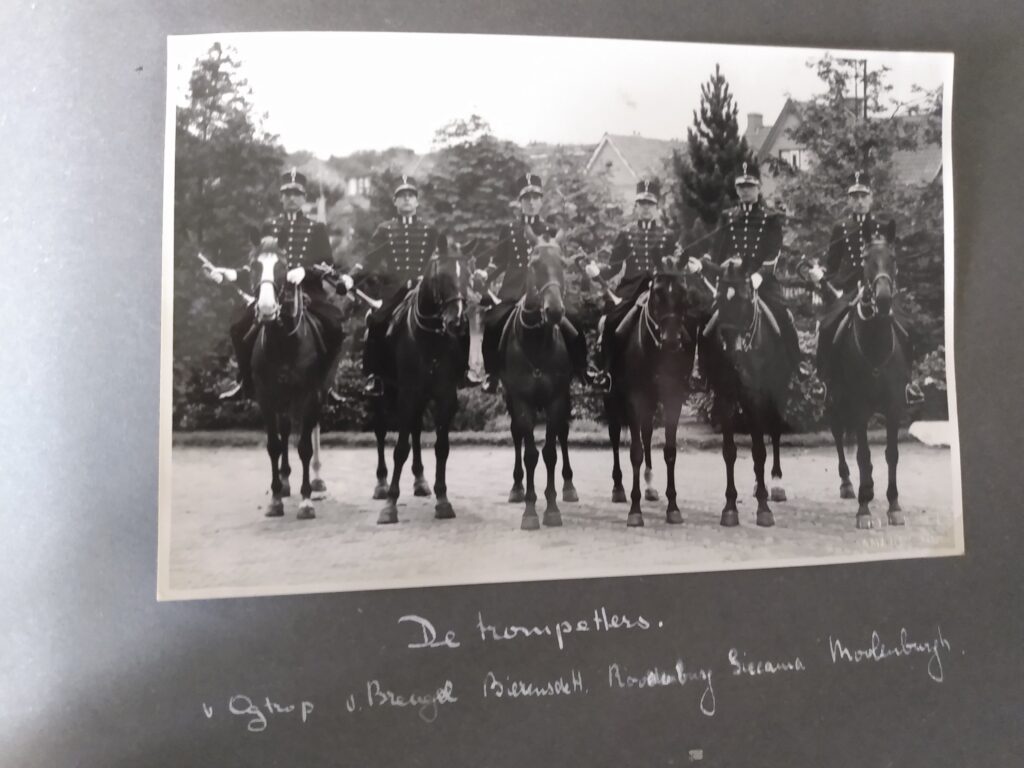 De trompetters.
v Ogtrop v. Brengel Bierensdett. Roodenburg Siccama Moolenburgh.